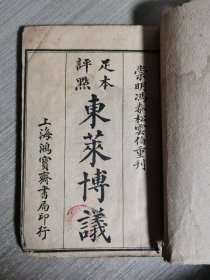 崇明馮泰松雲伯重刊
足本
評點
東萊博議
上海鴻寶齋書局印行